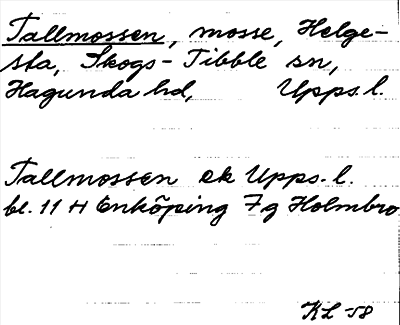 Tallmossen, mosse, Helge-
sta, Skogs-Tibble sn,
Hagunda hd, Upps.l.
Tallmossen ek Upps.l.
bl. 11 H Enköping 7g Holmbro
KL -58